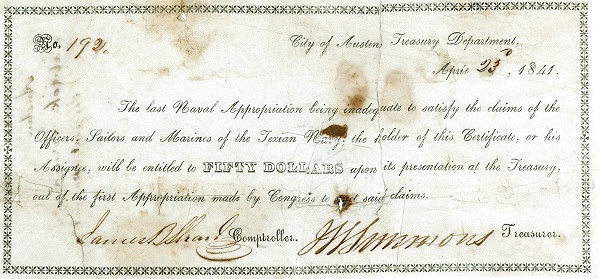 No. 192. City of Austin, Treasury Department,
April 23d, 1841.
The last Naval Appropriation being inadequate to satisfy the claims of the
Officers, Sailors and Marines of the Texian Navy, the holder of this Certificate, or his
Assignee, will be entitled to FIFTY DOLLARS upon its presentation at the Treasury,
out of the first Appropriation made by Congress to said claims.
James B Shaw Comptroller. JW Simmons Treasurer.